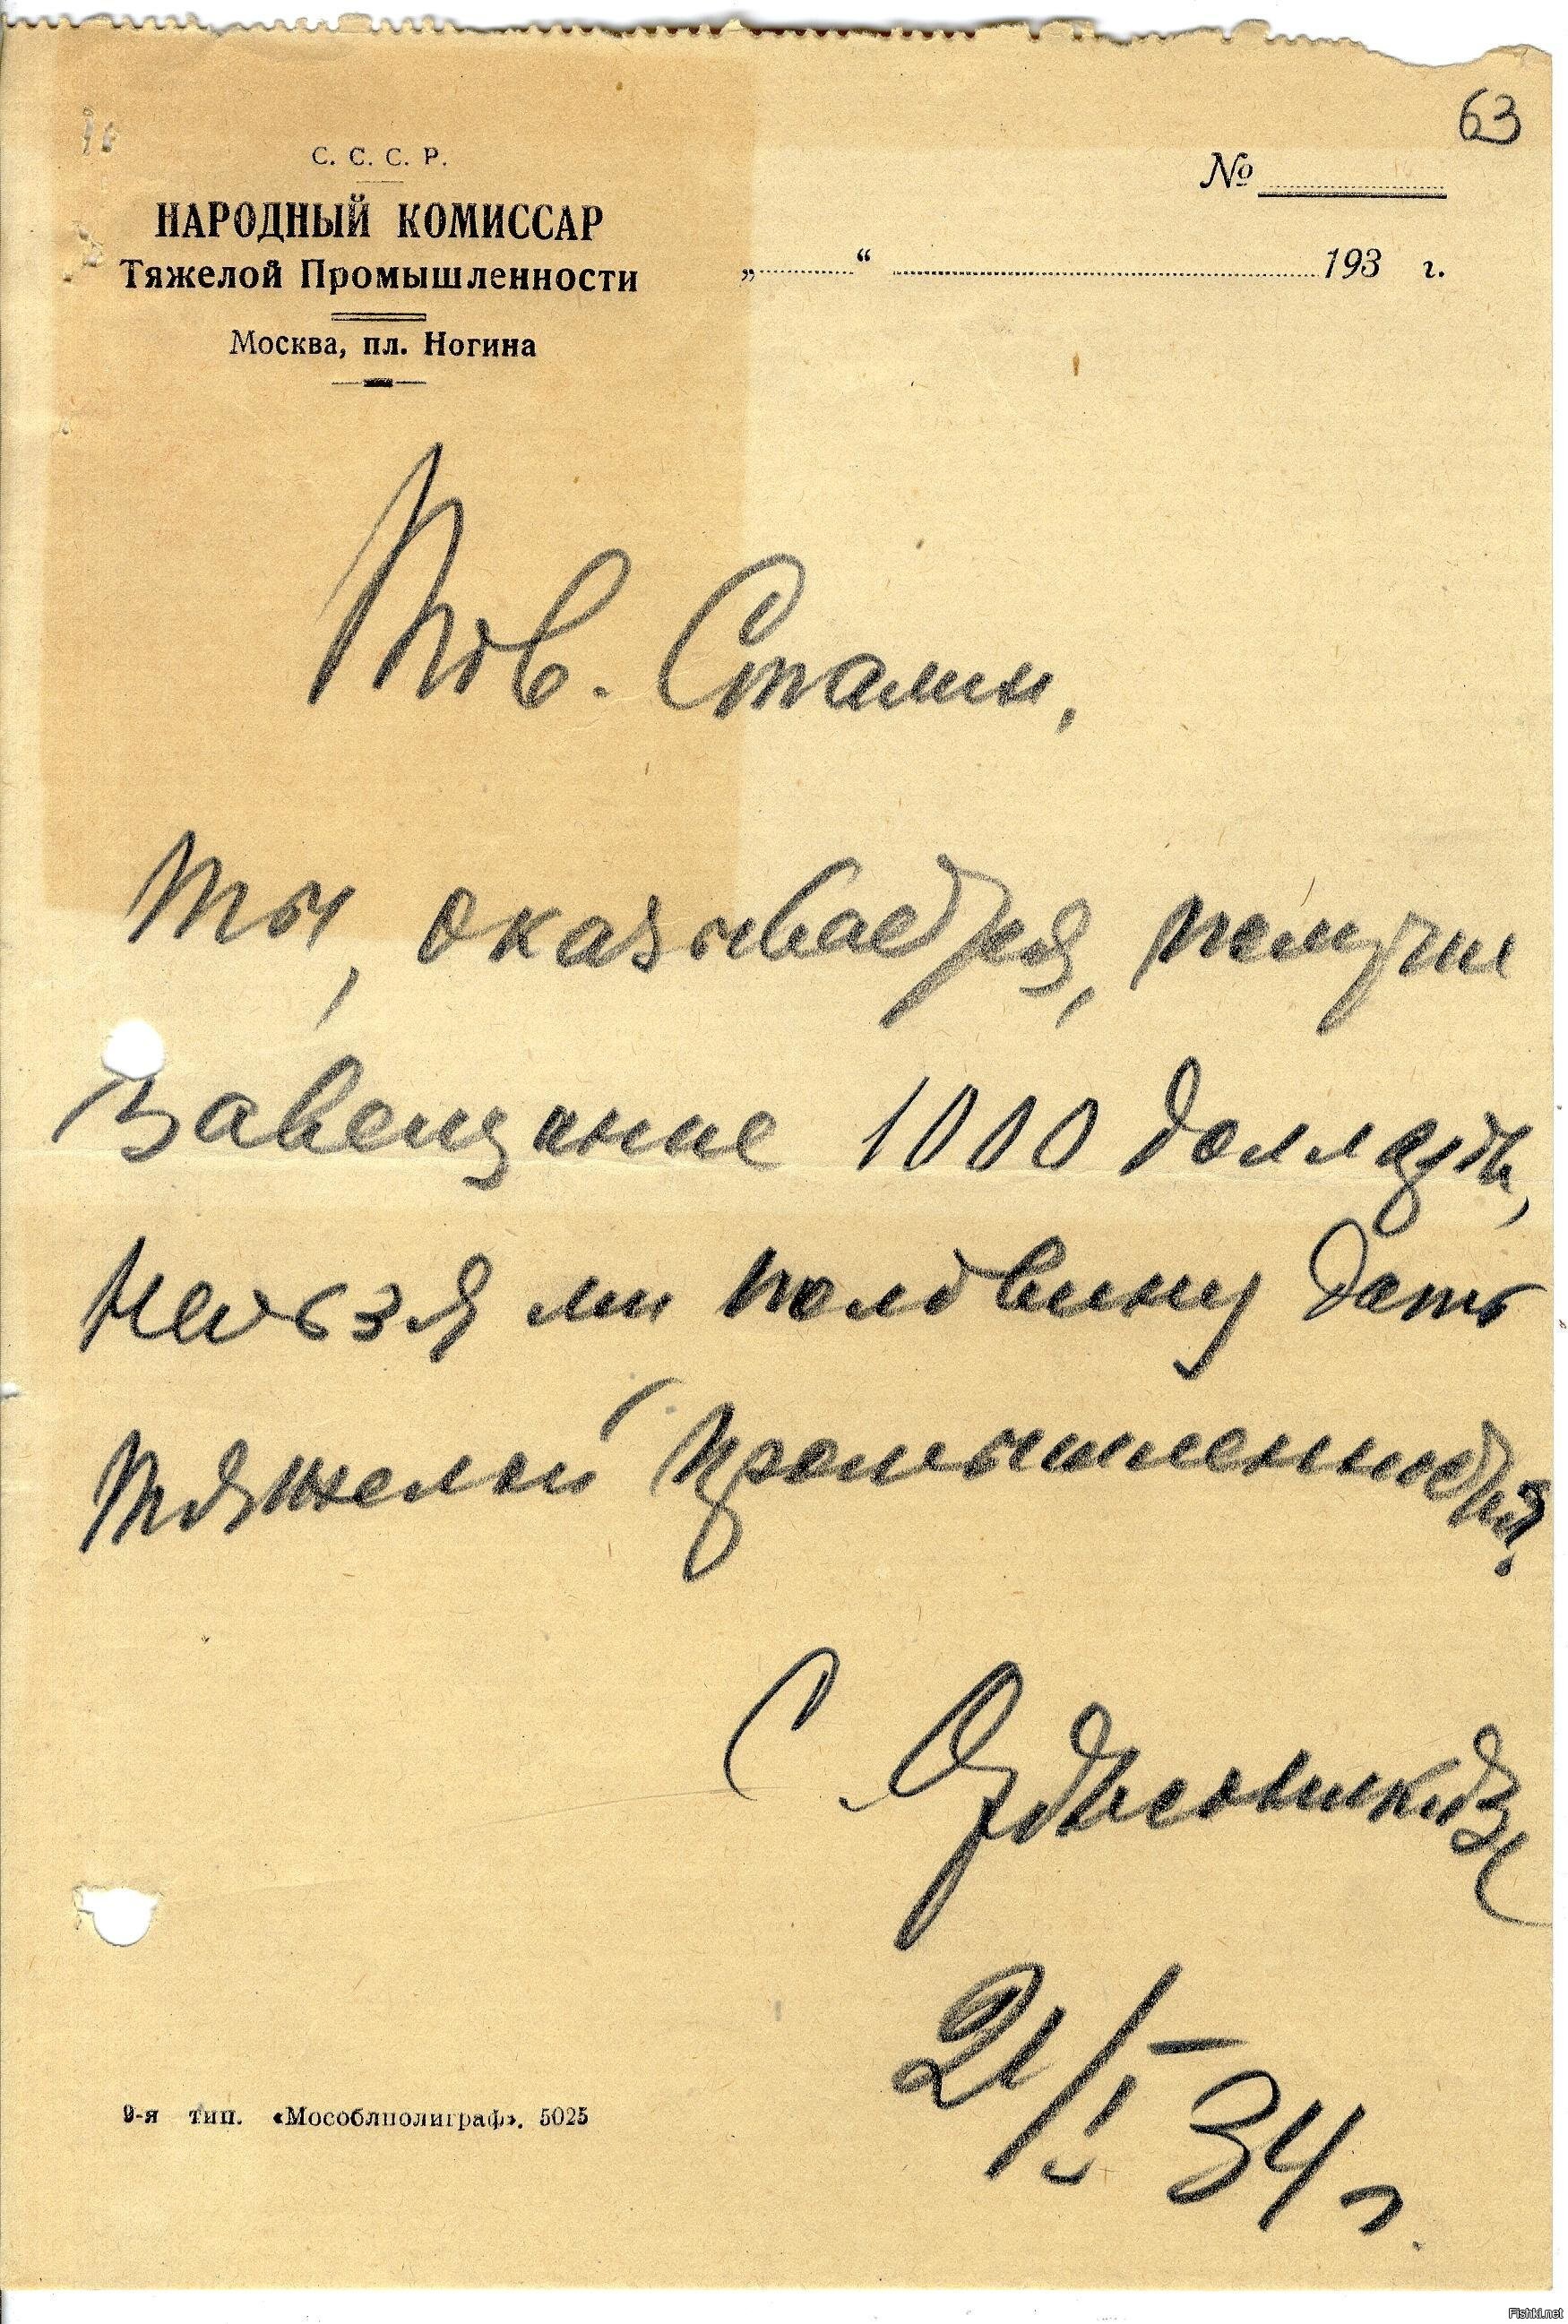 63
С. С. С. Р.
НАРОДНЫЙ КОМИССАР
Тяжелой Промышленности
Москва, пл. Ногина
№
„ “ 193 г.
Тов. Сталин,
Ты, оказывается, получил
завещание 1000 долларов,
нельзя ли половину дать
тяжелой промышленности?
С. Орджоникидзе
21/I 34 г.
9-я тип. «Мособлполиграф». 5025
Fishki.net